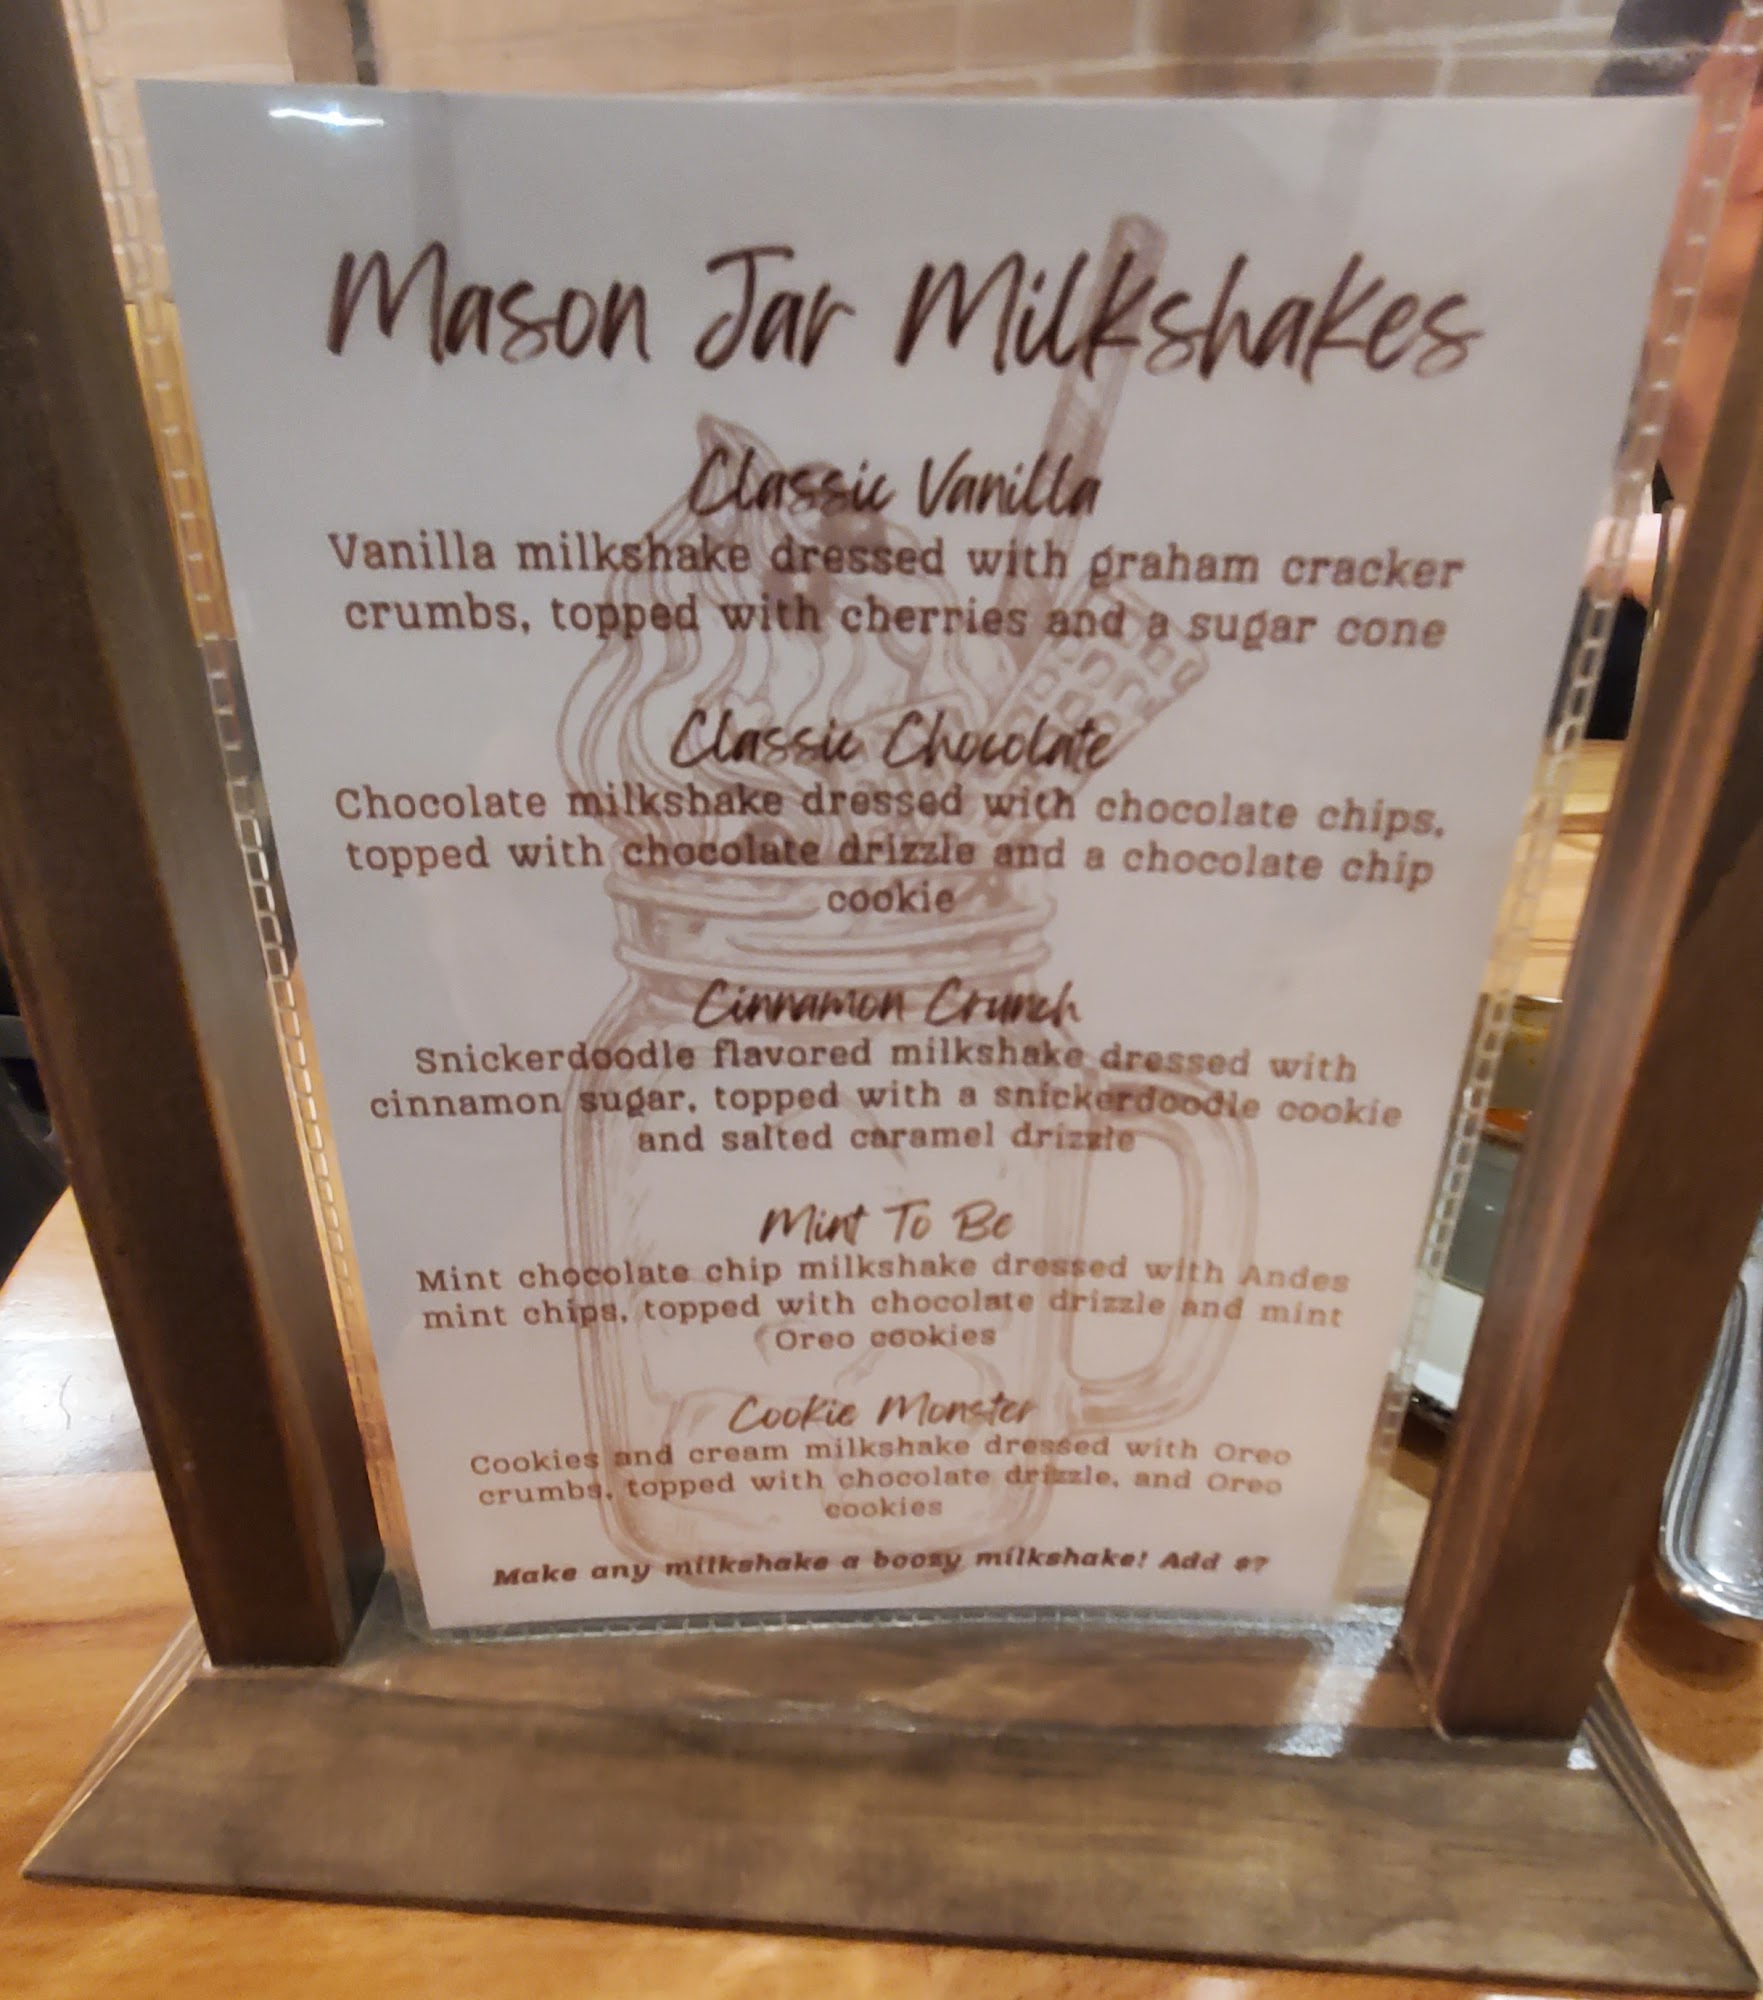 Mason Jar Milkshakes
Classic Vanilla
Vanilla milkshake dressed with graham cracker
crumbs, topped with cherries and a sugar cone
Classic Chocolate
Chocolate milkshake dressed with chocolate chips,
topped with chocolate drizzle and a chocolate chip
cookie
Cinnamon Crunch
Snickerdoodle flavored milkshake dressed with
cinnamon sugar, topped with a snickerdoodle cookie
and salted caramel drizzle
Mint To Be
Mint chocolate chip milkshake dressed with Andes
mint chips, topped with chocolate drizzle and mint
Oreo cookies
Cookie Monster
Cookies and cream milkshake dressed with Oreo
crumbs, topped with chocolate drizzle, and Oreo
cookies
Make any milkshake a boozy milkshake! Add $7